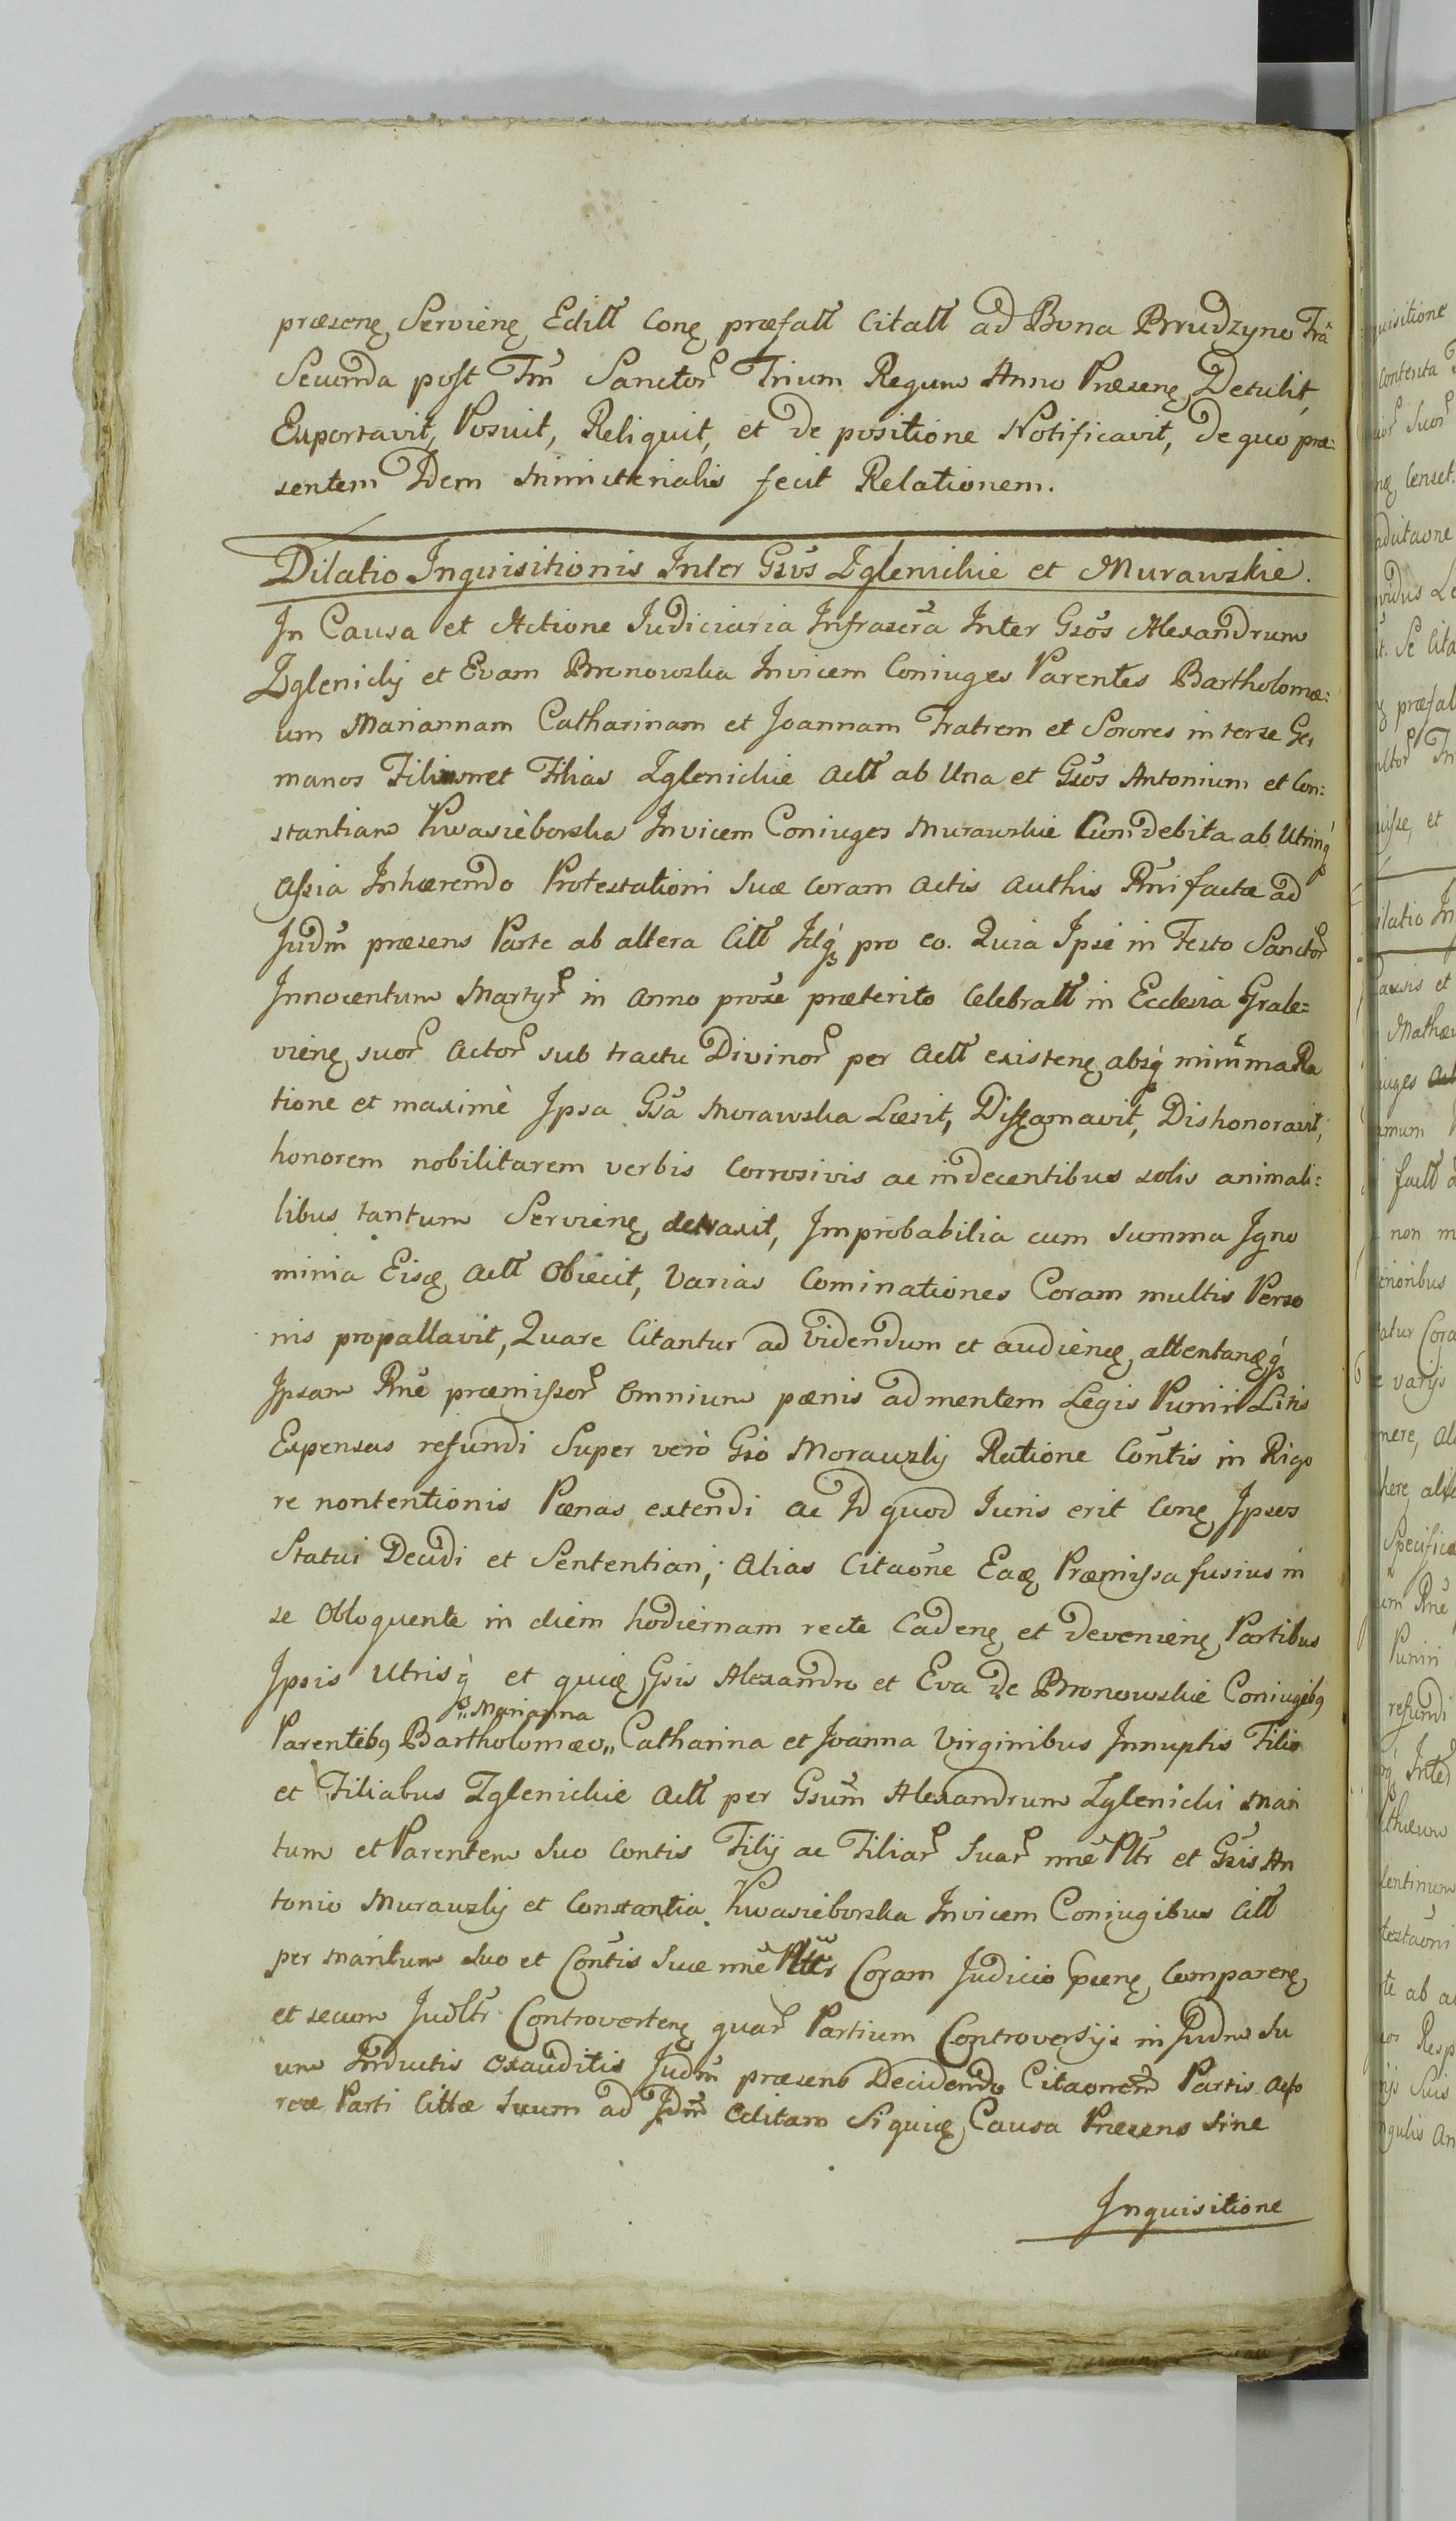 præsenę Servienę Editt Conę præfatt Citatt ad Bona Brudzyno Fra
Secunda post Fm̃ Sanctor Trium Regum Anno Præsenę Detulit,
Exportavit, Posuit, Reliquit, et de positione Notificavit, de quo præ:
sentem Idem Ministerialis fecit Relationem.
Dilatio Inquisitionis Inter Gsos Zglenickie et Murawskie.
In Causa et Actione Judiciaria Infrascra Inter Gsos Alexandrum
Zglenicky et Evam Bronowska Invicem Coniuges Parentes Bartholomæ:
um Mariannam Catharinam et Joannam Fratrem et Sorores inter se Ger
manos Filium et Filias Zglenickie Actt ab Una et Gsos Antonium et Con:
stantiam Kwasieborska Invicem Coniuges Murawskie Cum debita ab Utrinq́
Assia Inhærendo Protestationi Suæ coram Actis Authis Rńi factæ ad
Judm̃ præsens Parte ab altera Citt Idq́ʒ pro eo. Quia Ipsi in Festo Sanctor
Innocentum Martyr in Anno proxe præterito Celebratt in Ecclesia Grale=
vienę suor Actor sub tractu Divinor per Actt existenę absq́ minima Ra
tione et maximè Ipsa Gsa Morawska Læsit, Diffamavit, Dishonoravit,
honorem nobilitarem verbis Corrosivis ac indecentibus solis animali:
libus tantum Servienę detraxit, Improbabilia cum summa Igno
minia Eisdę Actt Obiecit, Varias Cominationes Coram multis Perso
nis propallavit, Quare Citantur ad Videndum et audienę, attentanęq́ʒ
Ipsam Rne præmissor Omnium pænis ad mentem Legis Puniri Litis
Expensas refundi Super verò Gso Morawsky Ratione Contis in Rigo
re nontentionis Pænas extendi ac Id quod Juris erit Conę Ipsos
Statui Decidi et Sententiari; Alias Citaone Eadę Præmissa fusius in
se Obloquente in diem hodiernam recte Cadenę et Devenienę Partibus
Ipsis Utrisq́ et quidę Gsis Alexandro et Eva de Bronowskie Coniugibʒ
" Marianna
Parentibʒ Bartholomæo,, Catharina et Joanna Virginibus Innuptis Filio
et Filiabus Zglenickie Actt per Gsum Alexandrum Zglenicki Mari
tum et Parentem Suo Contis Filij ac Filiar Suar nñe Pltr et Gsis An
tonio Murawsky et Constantia Kwasieborska Invicem Coniugibus Citt
per Maritum Suo et Contis Suæ nñe Coram Judicio pñę Comparenę
et secum Judltr Controvertenę quar Partium Controversijs in Judm Su
um Inductis exauditis Judm̃ præsens Decidendo Citaonem Partis Acto
reæ Parti Cittæ Suum ad Jdm̃ Editam Siquidę Causa Præsens Sine
Inquisitione